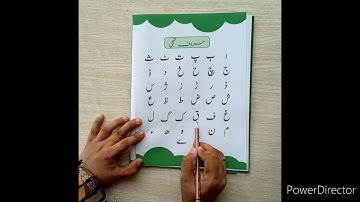 حروف تہجی
ا ب پ ت ٹ ث
ج چ ح خ د ڈ
ذ ر ڑ ز ژ س
ش ص ض ط ظ ع
غ ف ق ک گ ل
م ن ہ ھ ء
ے
PowerDirector